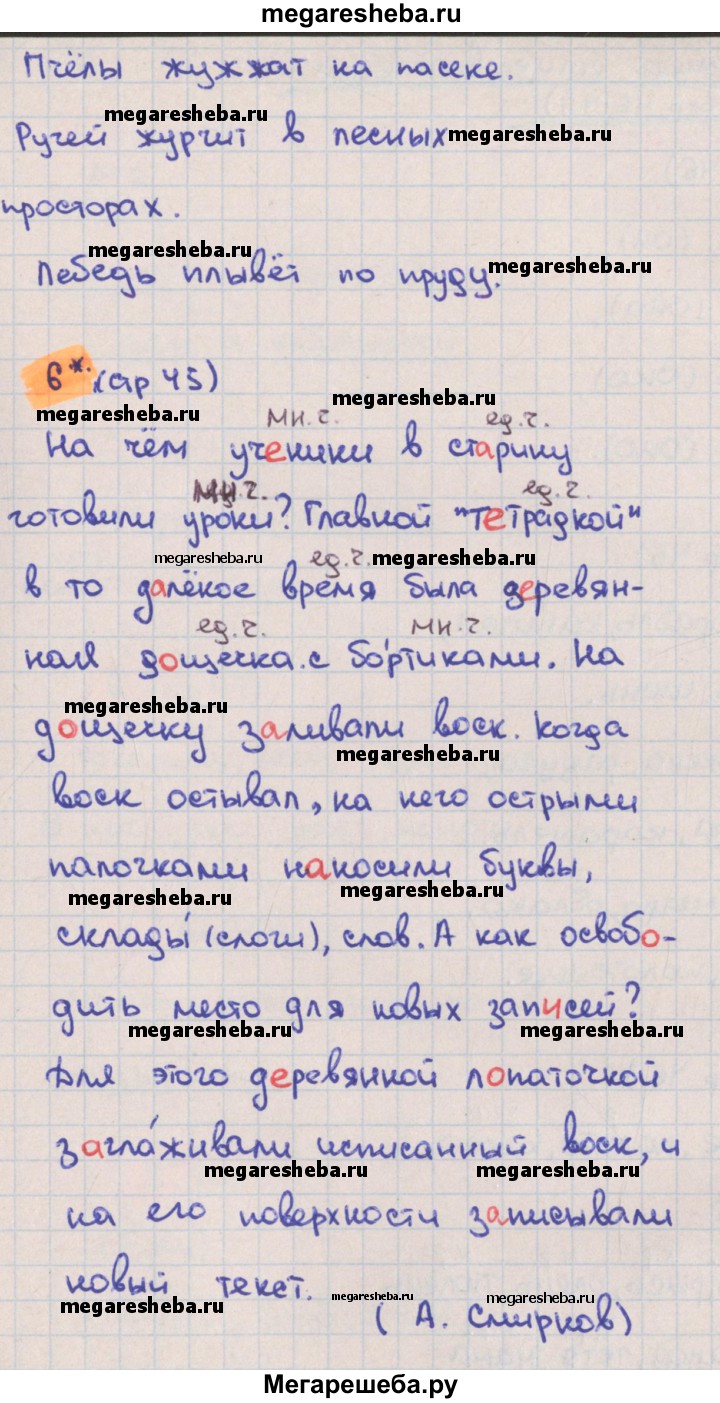 megaresheba.ru
Пчёлы жужжат на пасеке.
megaresheba.ru
Ручей журчит в лесных megaresheba.ru
просторах.
megaresheba.ru
Лебедь плывёт по пруду. megaresheba.ru
6*. (стр 45)
megaresheba.ru megaresheba.ru
мн.ч. ед.ч.
На чём ученики в старину
мн.ч. ед.ч.
готовили уроки? Главной "тетрадкой"
megaresheba.ru ед.ч. megaresheba.ru
в то далёкое время была деревян-
ед.ч. мн.ч.
ная дощечка с бо́ртиками. На
megaresheba.ru
дощечку заливали воск. Когда
megaresheba.ru
воск остывал, на него острыми
палочками наносили буквы,
megaresheba.ru megaresheba.ru
склады́ (слоги), слов. А как освобо-
дить место для новых записей?
megaresheba.ru megaresheba.ru
Для этого деревянной лопаточкой
загла́живали исписанный воск, и
megaresheba.ru megaresheba.ru
на его поверхности записывали
новый текст.
megaresheba.ru megaresheba.ru megaresheba.ru
(А. Смирнов)
Мегарешеба.ру